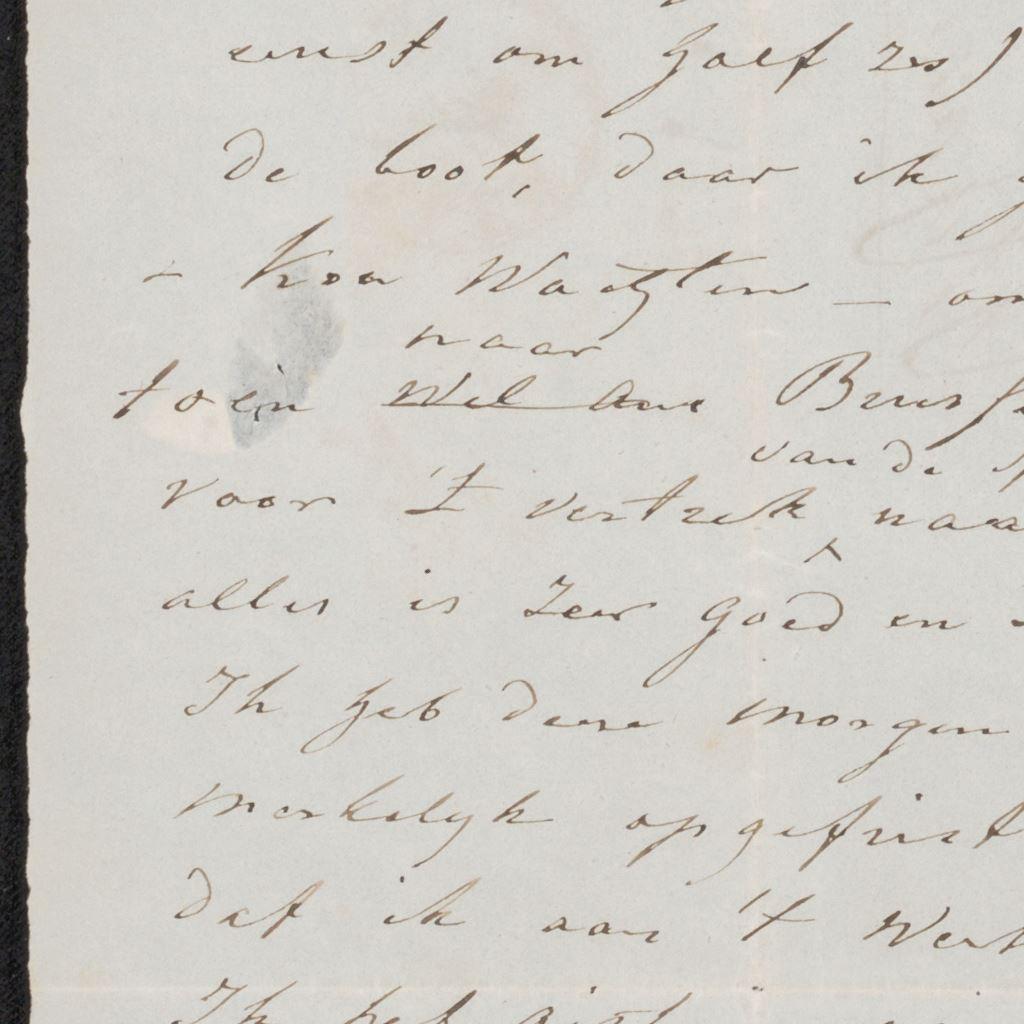 eerst om half zes)
de boot, daar ik
- kon wachten - om
naar
toen wel aan Beurs
van de
voor 't vertrek naa
alles is zeer goed en
Ik heb deze morgen
merkelyk opgefrist
dat ik aan 't werk
Ik heb